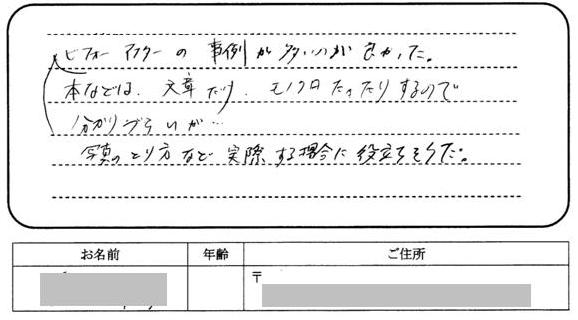 ビフォーアフターの事例が多いのが良かった。
本などは、文章だけ、モノクロだったりするので
分かりづらいが…
写真のとり方など実際する場合に役立ちそうだ。
お名前 年齢 ご住所
〒